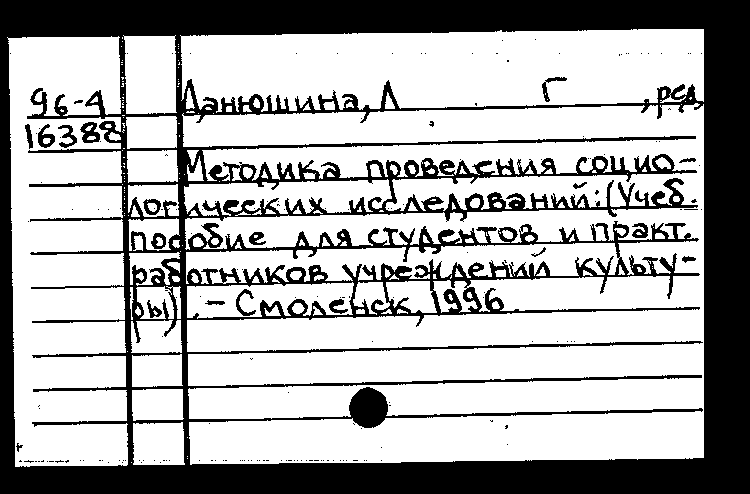 96-4 Данюшина, Л Г , ред.
16388
Методика проведения социо-
логических исследований: (Учеб.
пособие для студентов и практ.
работников учреждений культу-
ры). - Смоленск, 1996.